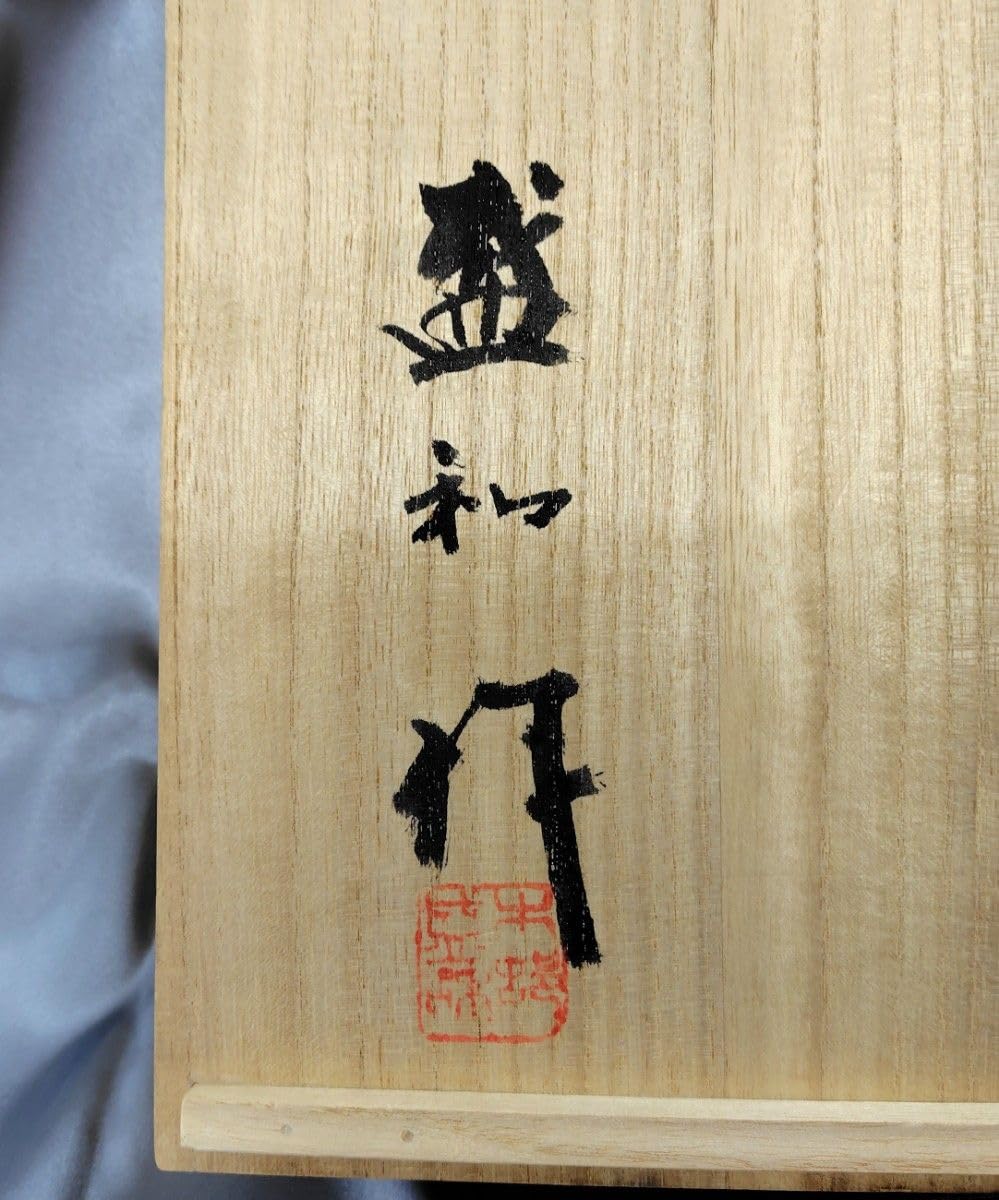 盛和
作